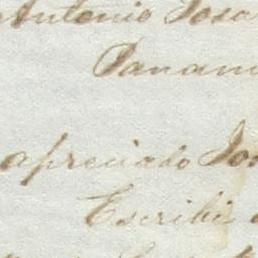 Antonio Josa
Panam
apreciado Jos
Escribi